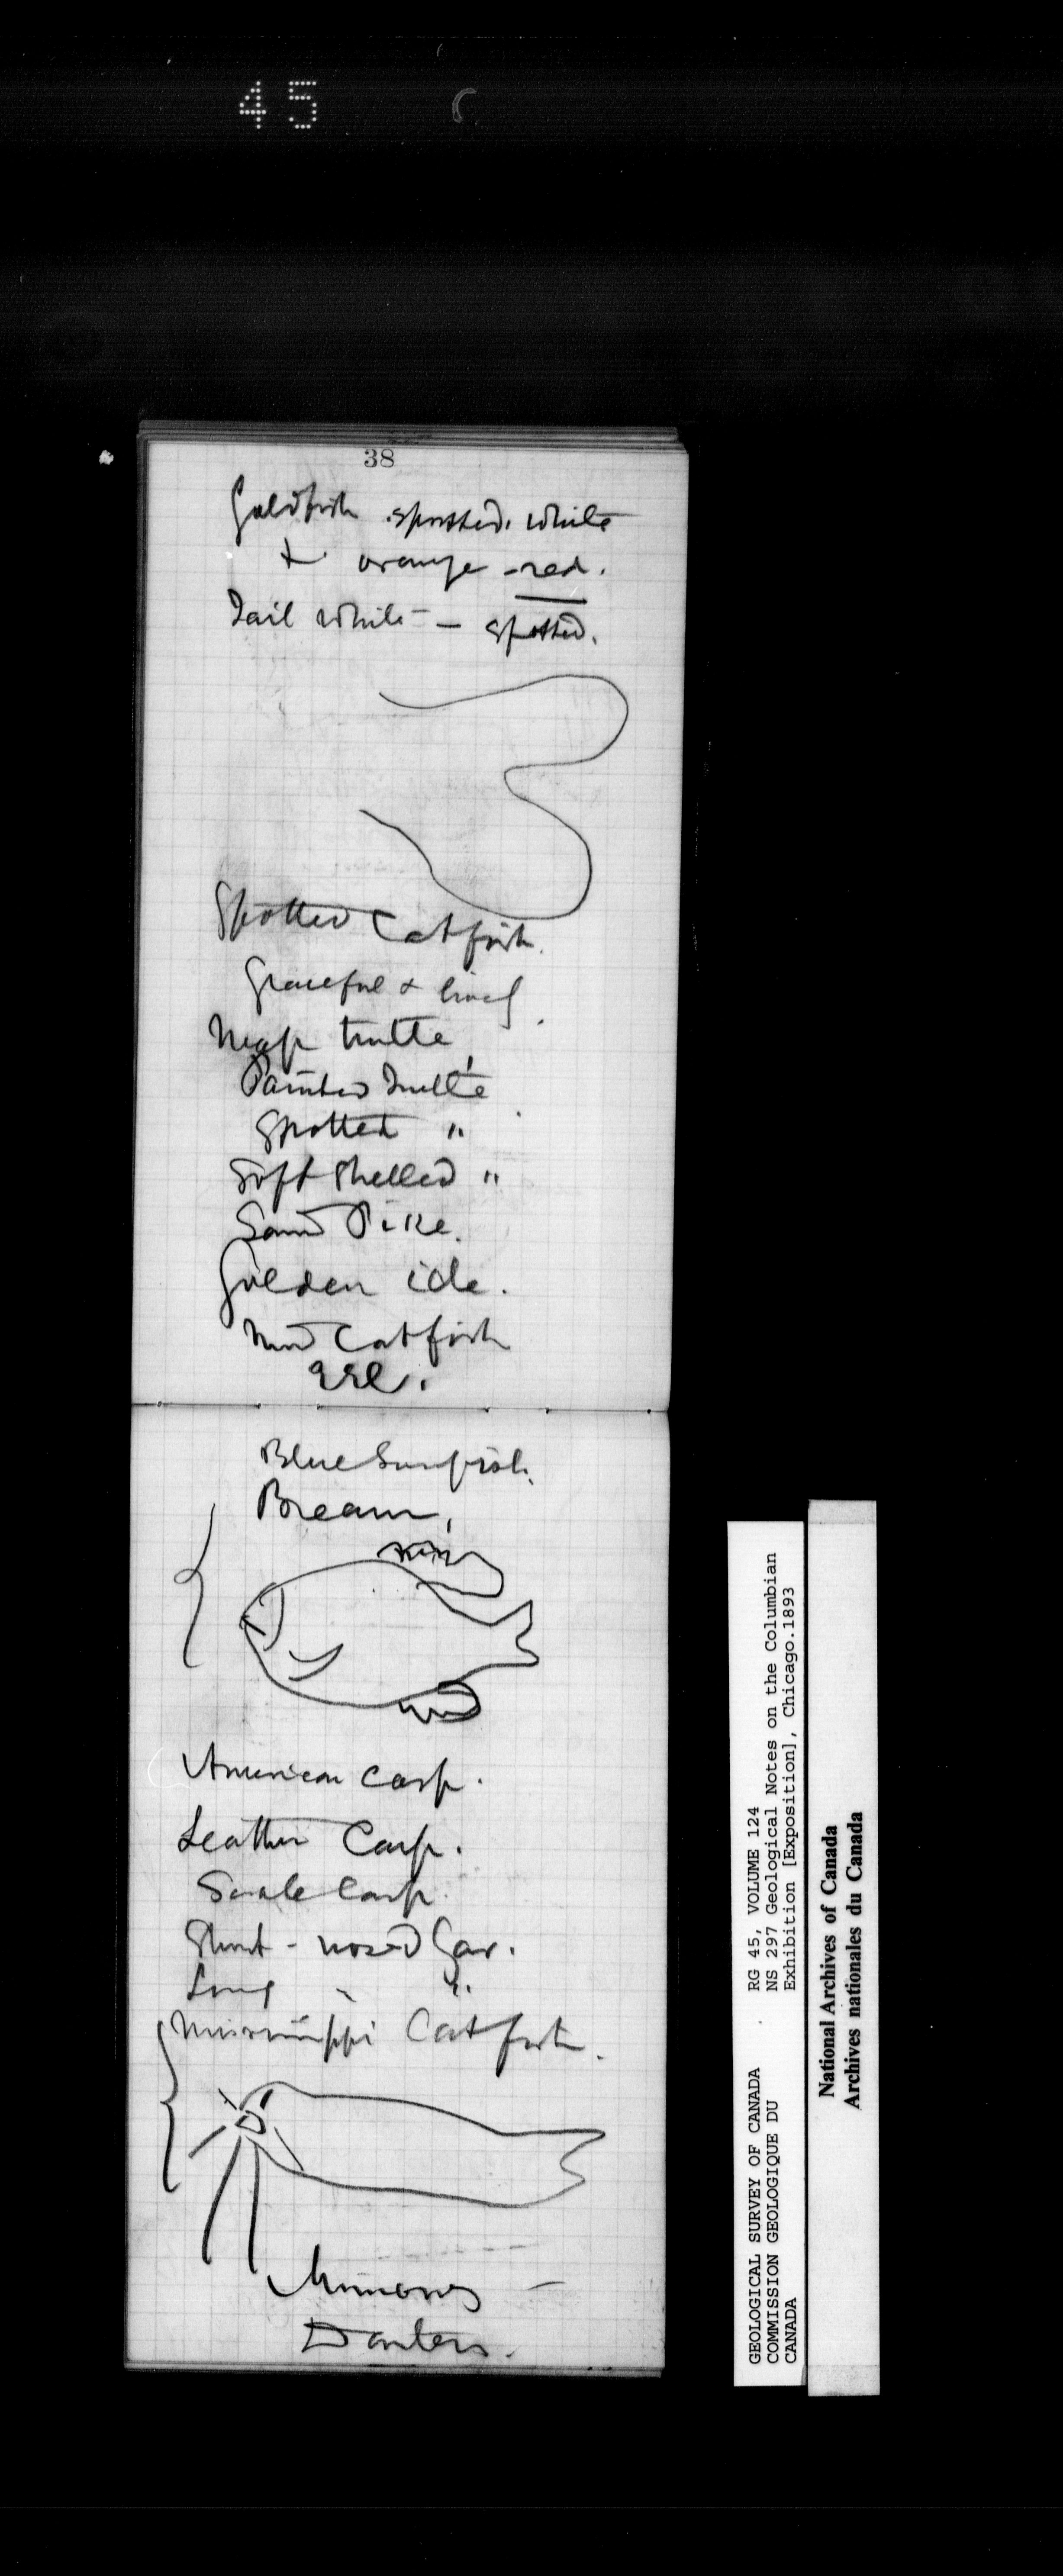 45
38
Goldfish spotted. white
+ orange - red.
Tail white - spotted.
Spotted Catfish.
Graceful + lively.
Map turtle,
Painted Turtle
Spotted "
Soft shelled "
Sand Pike.
Golden ide.
Mud Catfish
Eel.
Blue Sunfish.
Bream,
American Carp.
Leather Carp.
Scale Carp.
Short-nosed Gar.
Long " "
Mississippi Catfish.
Minnows -
Darters.
GEOLOGICAL SURVEY OF CANADA
COMMISSION GEOLOGIQUE DU
CANADA
RG 45, VOLUME 124
NS 297 Geological Notes on the Columbian
Exhibition [Exposition], Chicago.1893
National Archives of Canada
Archives nationales du Canada